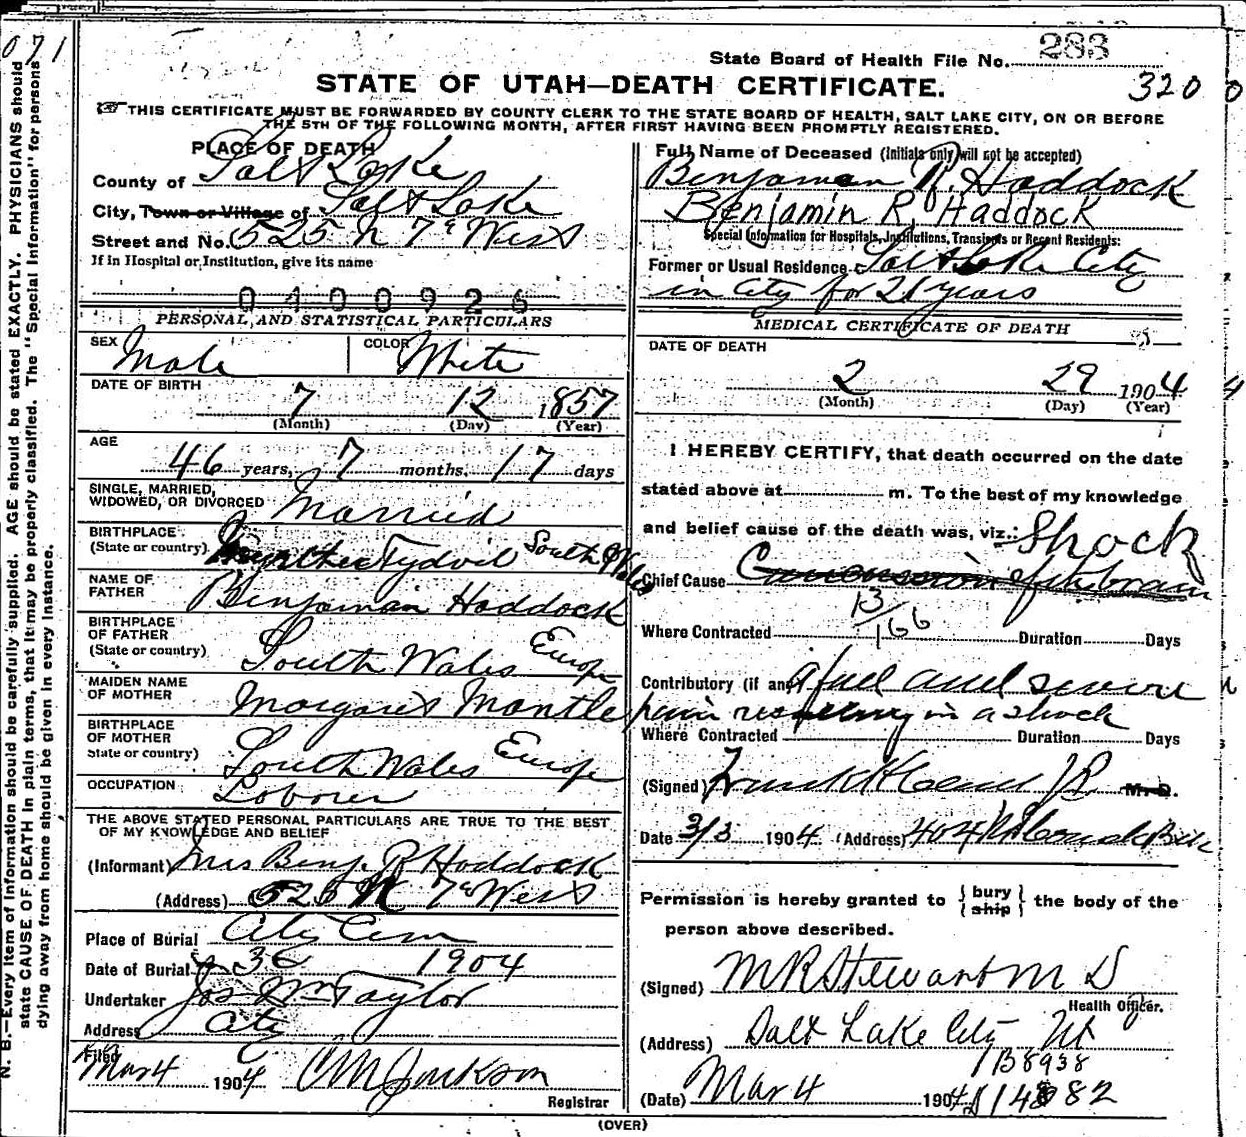 071
State Board of Health File No. 283
STATE OF UTAH—DEATH CERTIFICATE.
320
THIS CERTIFICATE MUST BE FORWARDED BY COUNTY CLERK TO THE STATE BOARD OF HEALTH, SALT LAKE CITY, ON OR BEFORE
THE 5TH OF THE FOLLOWING MONTH, AFTER FIRST HAVING BEEN PROMPTLY REGISTERED.
N. B.—Every item of information should be carefully supplied. AGE should be stated EXACTLY. PHYSICIANS should
state CAUSE OF DEATH in plain terms, that it may be properly classified. The "Special Information" for persons
dying away from home should be given in every instance.
PLACE OF DEATH
County of Salt Lake
City, Town or Village of Salt Lake
Street and No. 525 N 7th West
If in Hospital or Institution, give its name
0400926
PERSONAL AND STATISTICAL PARTICULARS
SEX Male COLOR White
DATE OF BIRTH
7 12 1857
(Month) (Day) (Year)
AGE
46 years, 7 months, 17 days
SINGLE, MARRIED,
WIDOWED, OR DIVORCED Married
BIRTHPLACE
(State or country) Tydvil South Wales
NAME OF
FATHER Benjaman Haddock
BIRTHPLACE
OF FATHER
(State or country) South Wales Europe
MAIDEN NAME
OF MOTHER Margaret Mantle
BIRTHPLACE
OF MOTHER
State or country) South Wales Europe
OCCUPATION Laborer
THE ABOVE STATED PERSONAL PARTICULARS ARE TRUE TO THE BEST
OF MY KNOWLEDGE AND BELIEF
(Informant) Mrs Benj. R Haddock
(Address) 525 N 7th West
Place of Burial City Cem
Date of Burial 1904
Undertaker Jos Wm Taylor
Address City
Filed
Mar 4 1904 Jackson
Registrar
Full Name of Deceased (Initials only will not be accepted)
Benjaman R. Haddock
Benjamin R. Haddock
Special Information for Hospitals, Institutions, Transients or Recent Residents:
Former or Usual Residence Salt Lake City
in City for 21 years
MEDICAL CERTIFICATE OF DEATH
DATE OF DEATH
2 29 1904
(Month) (Day) (Year)
I HEREBY CERTIFY, that death occurred on the date
stated above at m. To the best of my knowledge
and belief cause of the death was, viz.: Shock
Chief Cause of the brain
13/166
Where Contracted Duration Days
Contributory (if any) and severe
pain resulting in a shock
Where Contracted Duration Days
(Signed) Frank M. D.
Date 3/3 1904 (Address) 404
Permission is hereby granted to { bury ship } the body of the
person above described.
(Signed) M R Stewart M D
Health Officer.
(Address) Salt Lake City Ut
B8938
(Date) Mar 4 1904
(OVER)